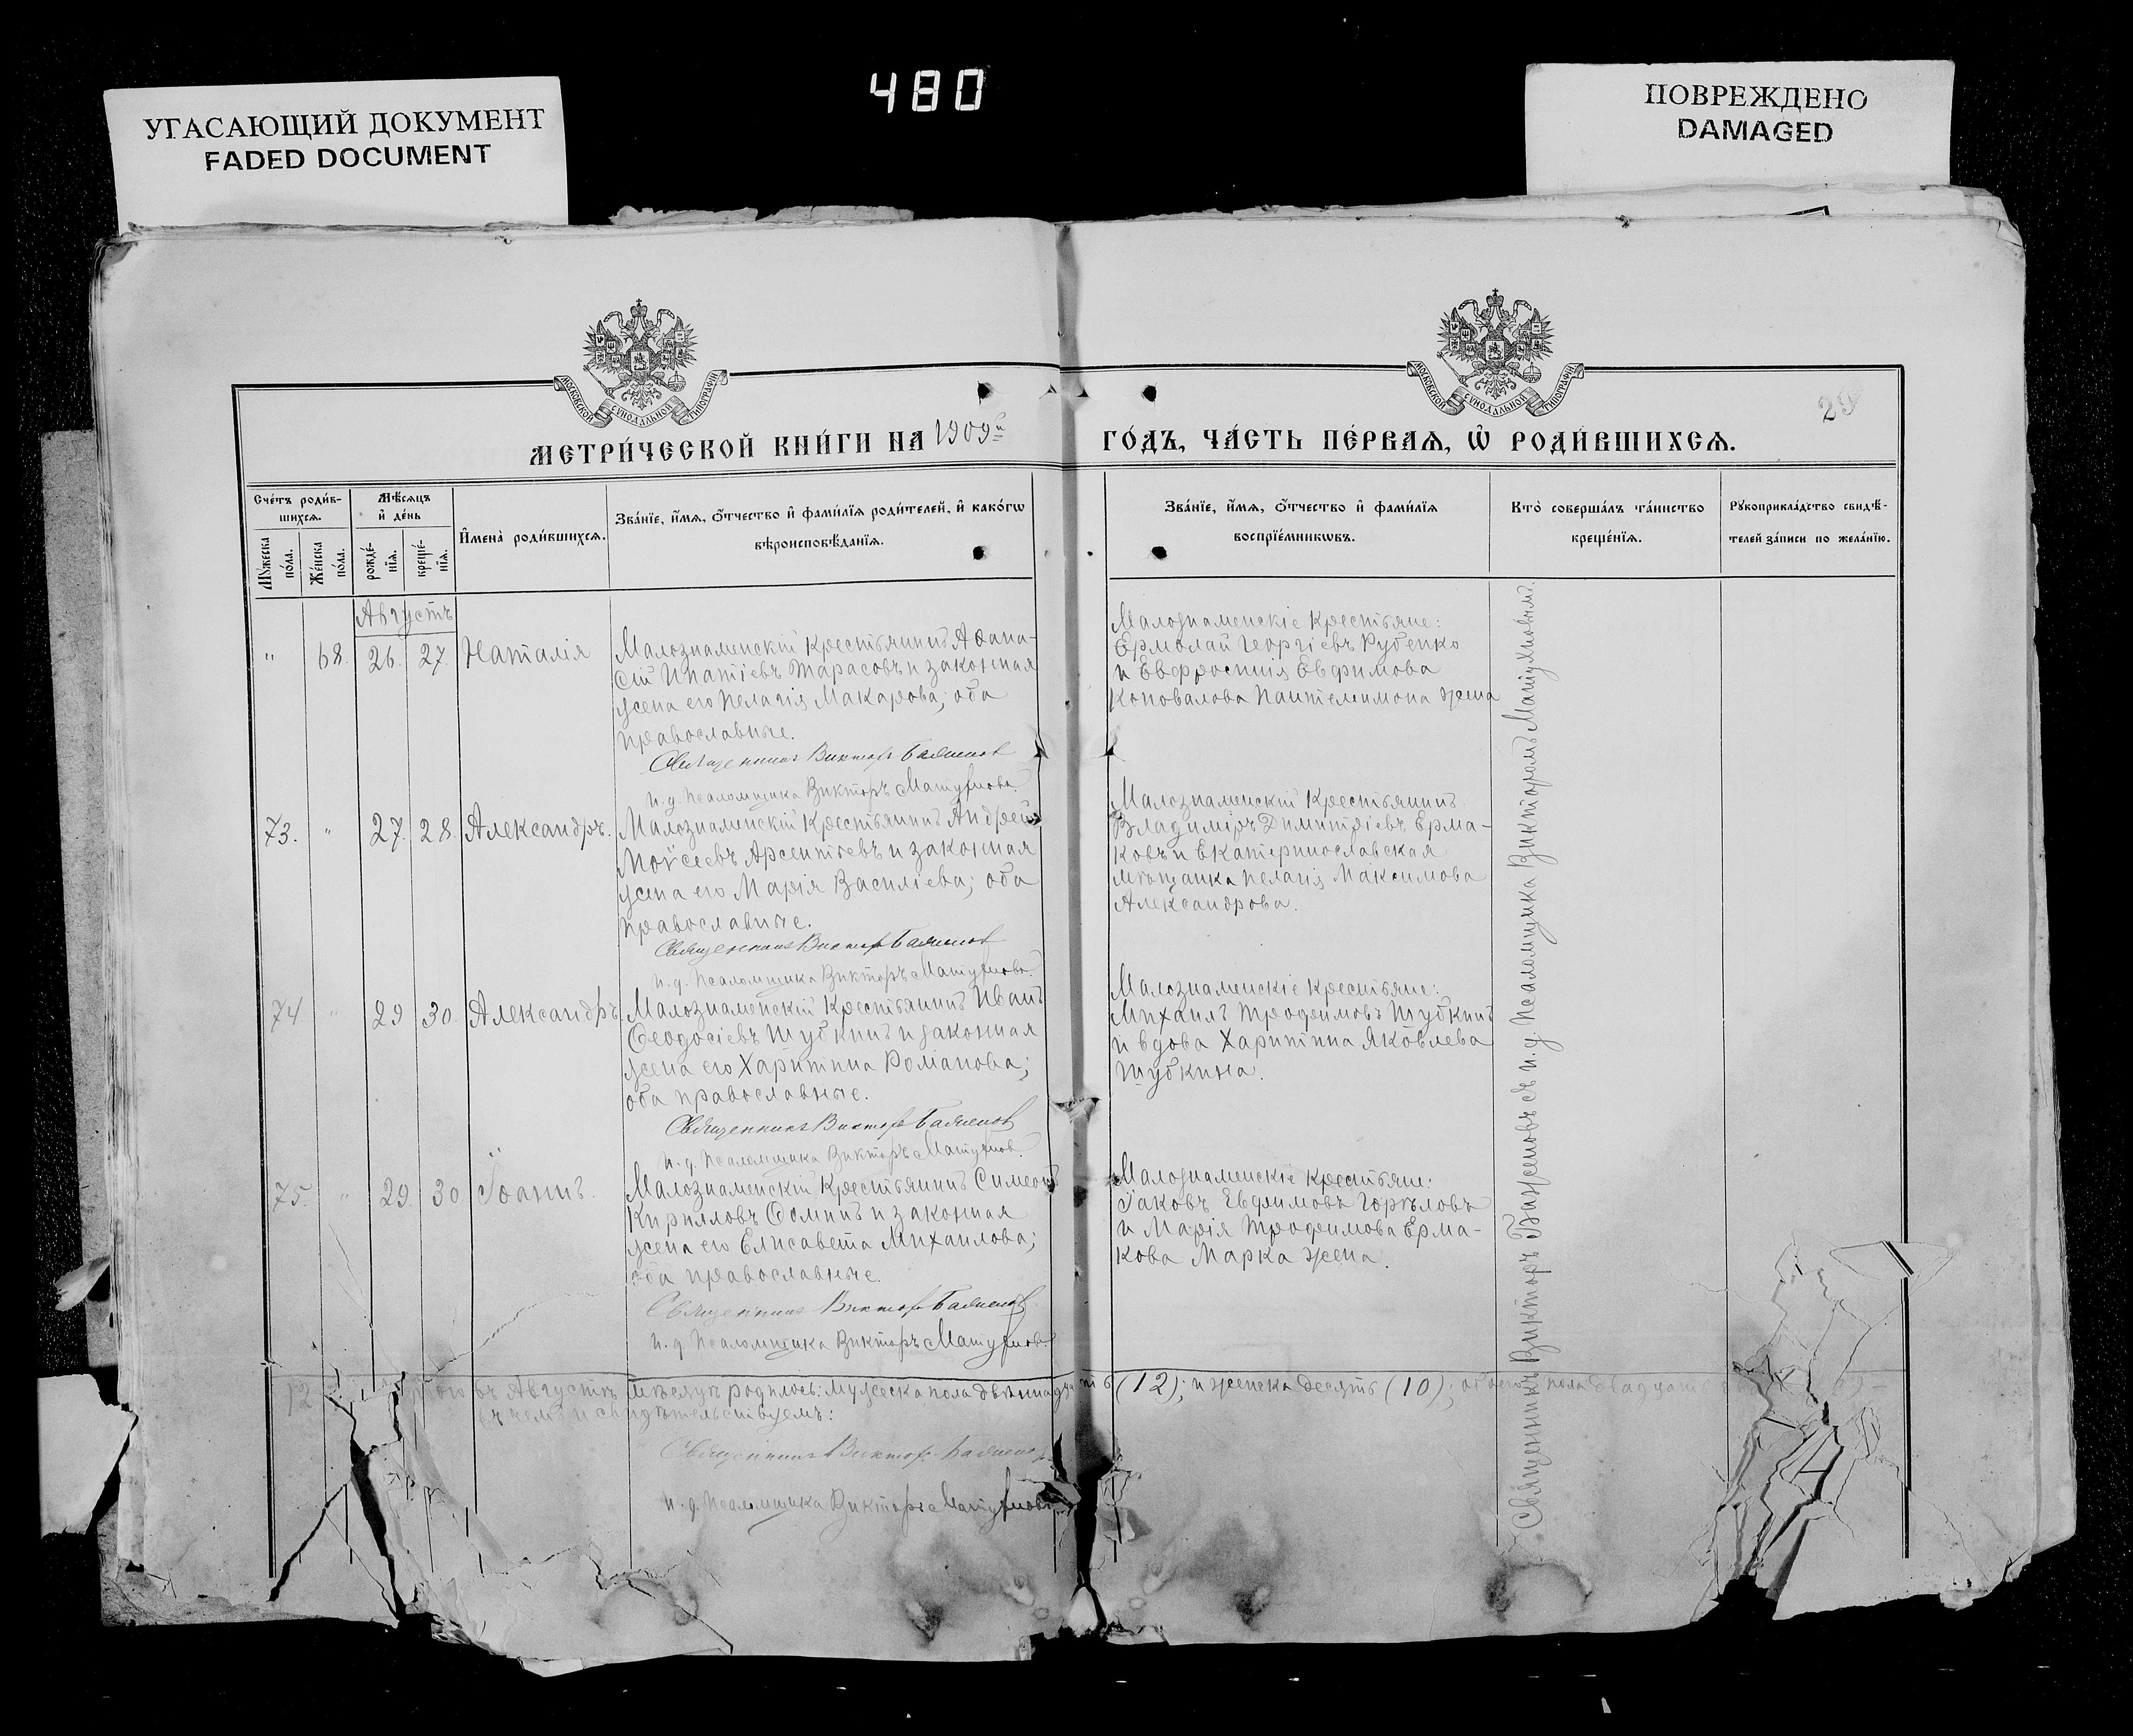 480
УГАСАЮЩИЙ ДОКУМЕНТ
FADED DOCUMENT
ПОВРЕЖДЕНО
DAMAGED
МОСКОВСКОЙ СѴНОДАЛЬНОЙ ТИПОГРАФІИ
МОСКОВСКОЙ СѴНОДАЛЬНОЙ ТИПОГРАФІИ
29
МЕТРИ́ЧЕСКОЙ КНИ́ГИ НА 1909й ГО́ДЪ, ЧА́СТЬ ПЕ́РВАѦ, Ѽ РОДИ́ВШИХСѦ.
Сче́тъ роди́в-
шихсѧ.
Мѣ́сѧцъ
и҆ де́нь
Мꙋ́жеска
по́ла.
Же́нска
по́ла.
рожде́-
нїѧ.
креще́-
нїѧ.
И҆мена̀ роди́вшихсѧ.
Зва́нїе, и҆́мѧ, ѻ҆́тчество и҆ фами́лїѧ роди́телей, и҆ како́гѡ
вѣроисповѣ́данїѧ.
Зва́нїе, и҆́мѧ, ѻ҆́тчество и҆ фами́лїѧ
воспрїе́мникѡвъ.
Кто̀ соверша́лъ та́инство
креще́нїѧ.
Рꙋкоприкла́дство свидѣ́-
телей за́писи по жела́нїю.
Августъ
" 68. 26. 27. Наталія
Малознаменскій крестьянинъ Аѳана-
сій Ипатіевъ Тарасовъ и законная
жена его Пелагія Макарова; оба
православные.
Священникъ Викторъ Баженов
и. д. псаломщика Викторъ Матухновъ
Малознаменскіе крестьяне:
Ермолай Георгіевъ Рубенко
и Евфросинія Евфимова
Коновалова Пантелимона жена
73. " 27. 28. Александръ.
Малознаменскій крестьянинъ Андрей
Моѵсеевъ Арсентіевъ и законная
жена его Марія Василіева; оба
православные.
Священникъ Викторъ Баженов
и. д. псаломщика Викторъ Матухновъ
Малознаменскій крестьянинъ
Владиміръ Димитріевъ Ерма-
ковъ и Екатеринославская
мѣщанка Пелагія Максимова
Александрова.
74 " 29 30. Александръ
Малознаменскій крестьянинъ Иванъ
Ѳеодосіевъ Шубкинъ и законная
жена его Харитина Романова;
оба православные.
Священникъ Викторъ Баженов
и. д. псаломщика Викторъ Матухновъ
Малознаменскіе крестьяне:
Михаилъ Трофимовъ Шубкинъ
и вдова Харитина Яковлева
Шубкина.
75. " 29. 30 Іоаннъ.
Малознаменскій крестьянинъ Симеонъ
Кирилловъ Осминъ и законная
жена его Елисавета Михаилова;
оба православные.
Священникъ Викторъ Баженов
и. д. псаломщика Викторъ Матухновъ
Малознаменскіе крестьяне:
Іаковъ Евфимовъ Горѣловъ
и Марія Трофимова Ерма-
кова Марка жена.
Священникъ Викторъ Баженовъ съ и. д. псаломщика Викторомъ Матухновымъ.
12 въ Августѣ мѣсяцѣ родилось: мужеска пола двѣнадцать (12); и женска десять (10); обоего пола двадцать
въ чемъ и свидѣтельствуемъ:
Священникъ Викторъ Баженов
и. д. псаломщика Викторъ Матухновъ